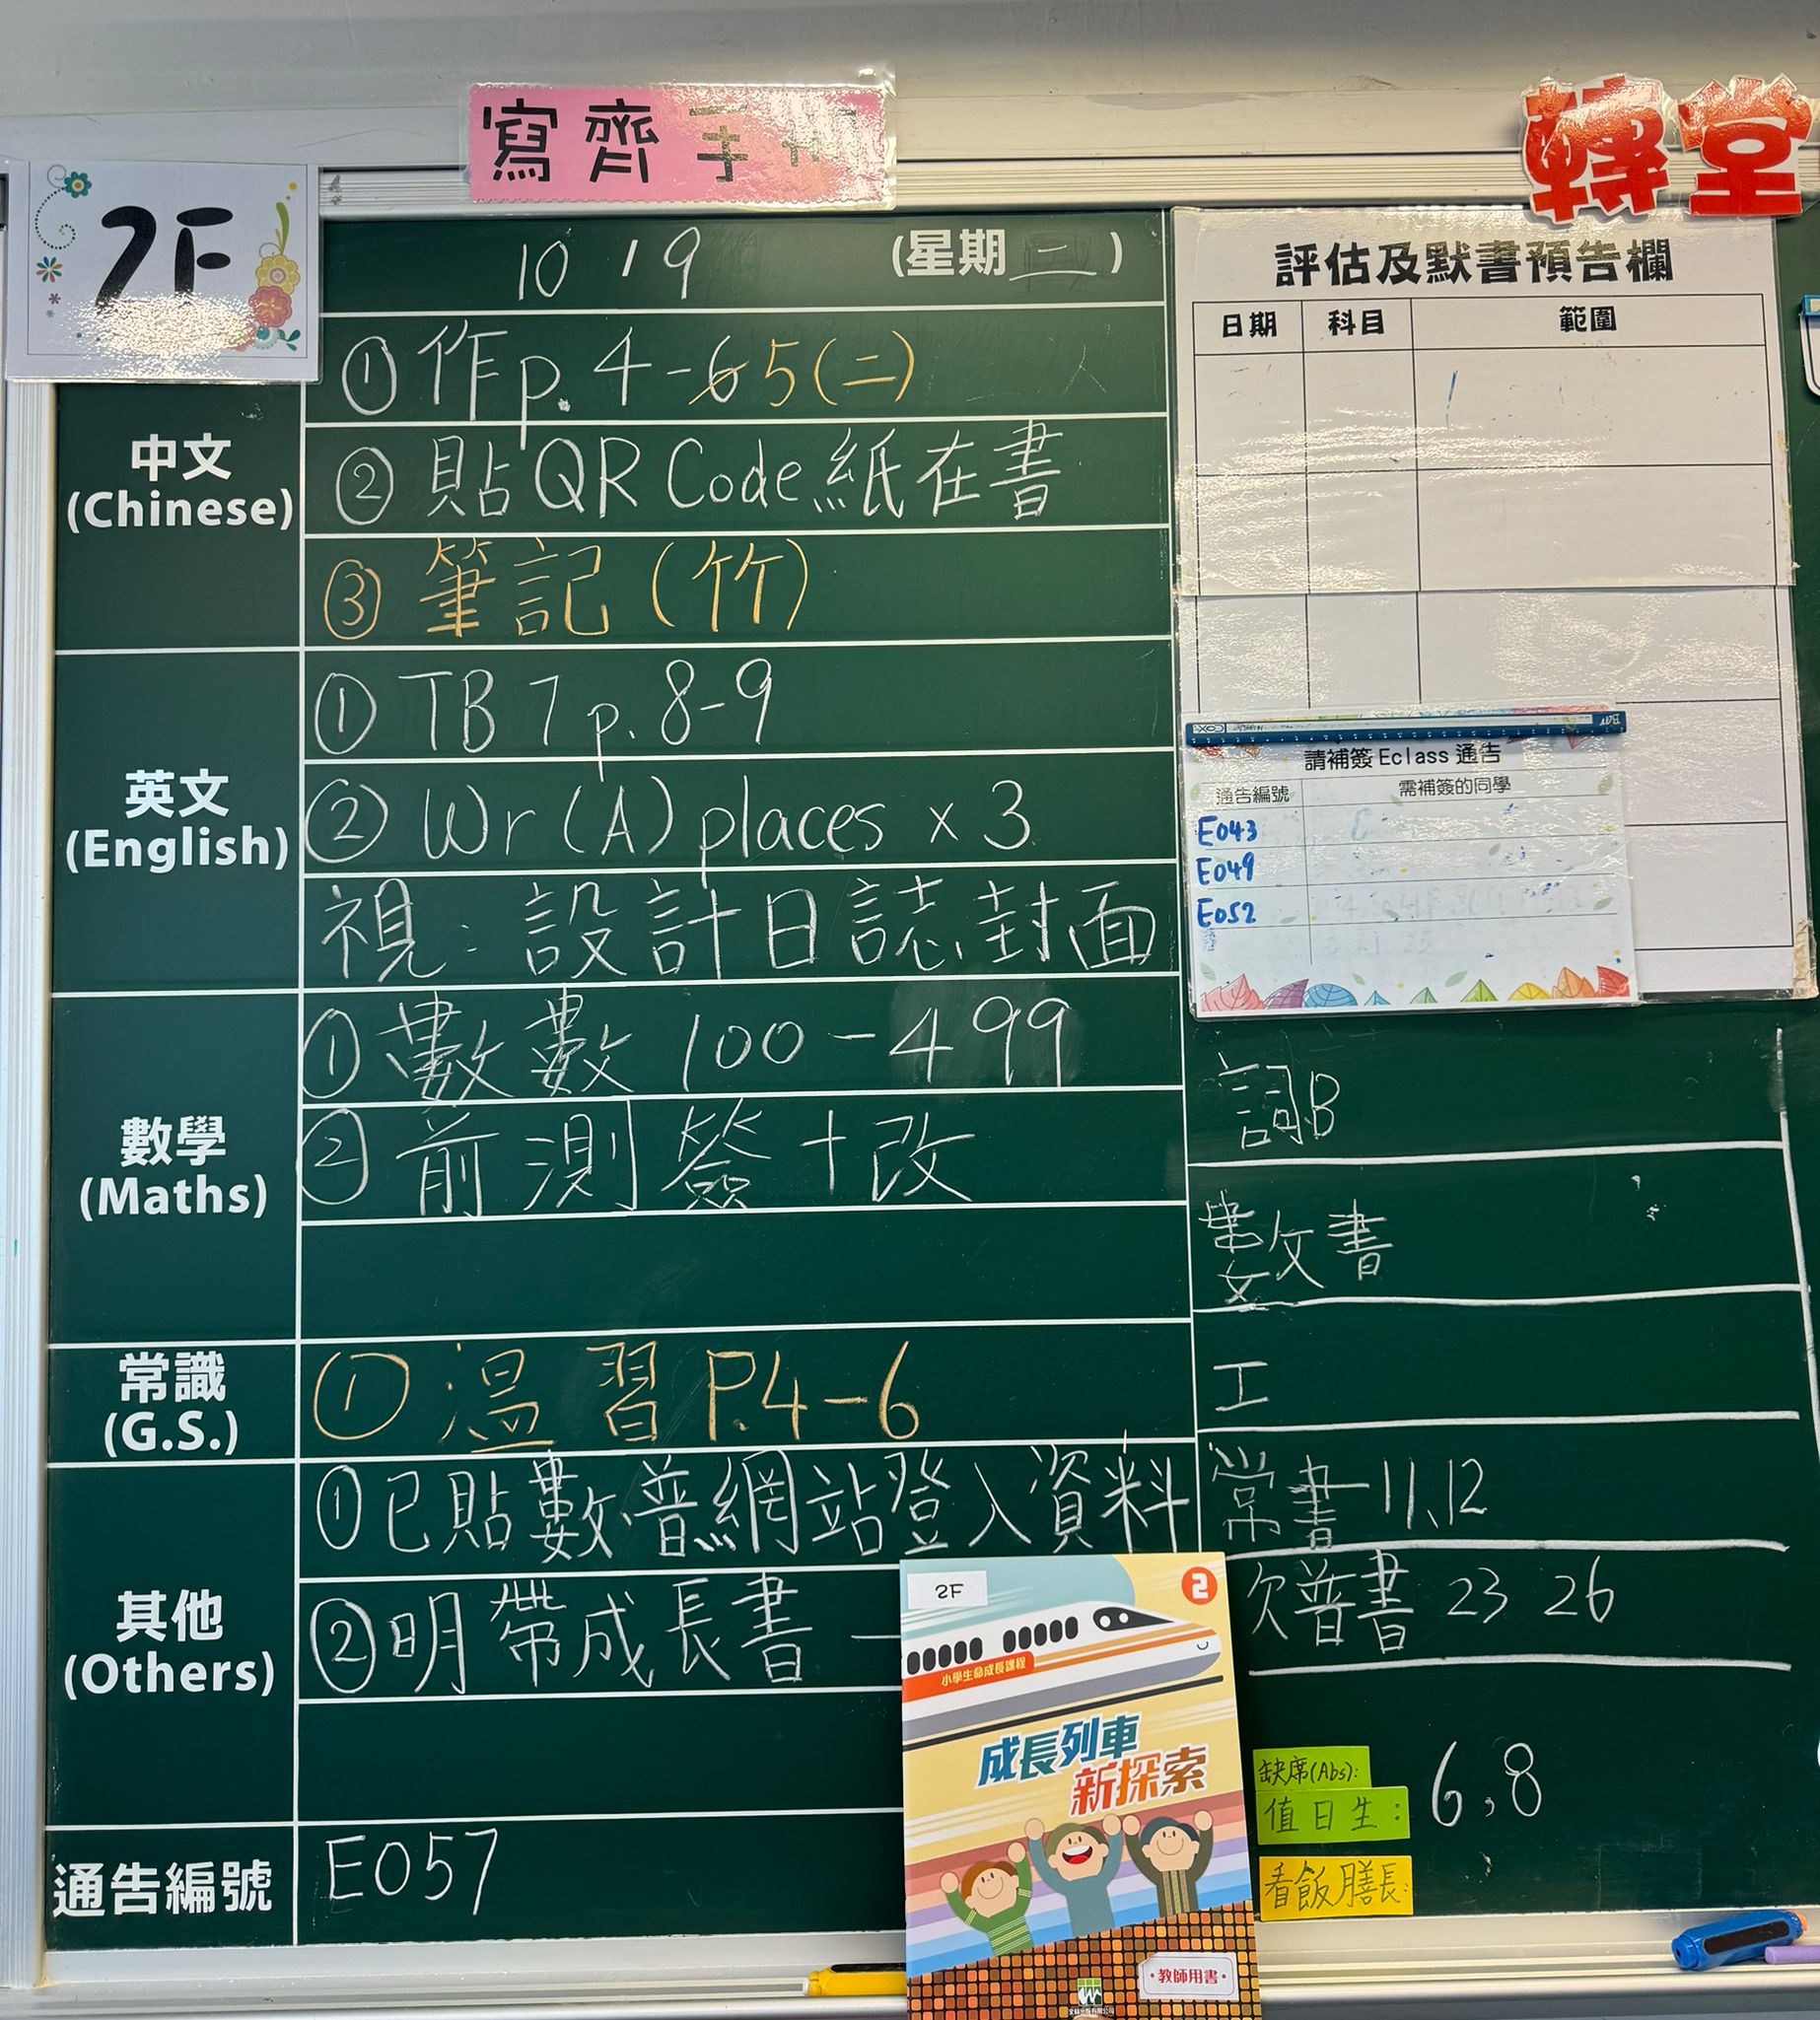 寫齊手
轉堂
2F
10 / 9 (星期二)
中文
(Chinese)
① 作 p. 4-6 5(二)
② 貼 QR Code 紙在書
③ 筆記 (竹)
英文
(English)
① TB 7 p. 8-9
② Wr (A) places × 3
視：設計日誌封面
數學
(Maths)
① 數數 100-499
② 前測簽+改
常識
(G.S.)
① 溫習 P.4-6
其他
(Others)
① 已貼數普網站登入資料
② 明帶成長書 —
通告編號
E057
評估及默書預告欄
日期 科目 範圍
請補簽 Eclass 通告
通告編號 需補簽的同學
E043
E049
E052
詞B
數文書
工
常書-11、12
欠普書 23 26
缺席(Abs):
值日生: 6,8
看飯膳長:
2F
2
小學生命成長課程
成長列車
新探索
·教師用書·